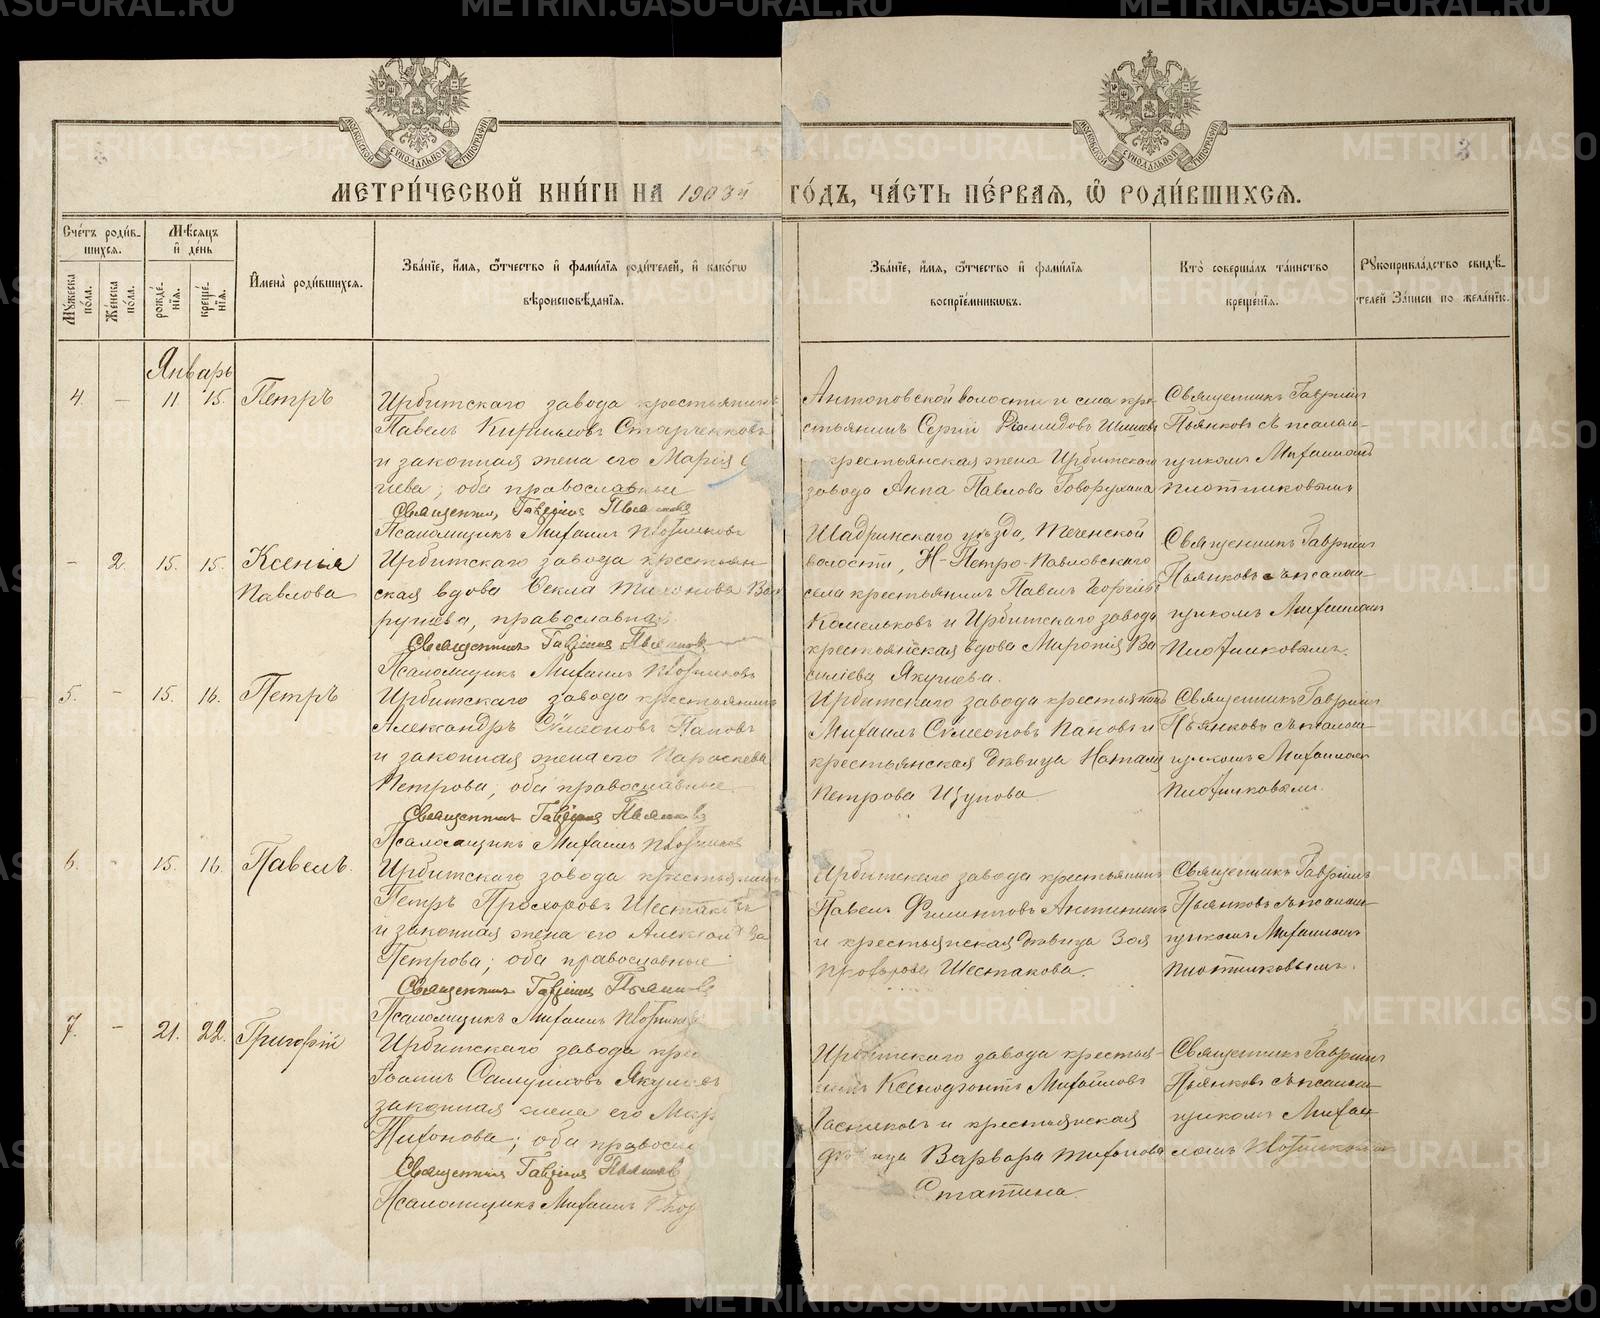 МЕТРИ́ЧЕСКОЙ КНИ́ГИ НА 1903й ГО́ДЪ, ЧА́СТЬ ПЕ́РВАЯ, Ѡ҆ РОДИ́ВШИХСѦ.
МОСКОВСКОЙ СѴНОДАЛЬНОЙ ТИПОГРАФІИ
МОСКОВСКОЙ СѴНОДАЛЬНОЙ ТИПОГРАФІИ
3
Сче́тъ роди́в-
шихся.
Мѣсяцъ
и де́нь
Мꙋжеска
по́ла.
Же́нска
по́ла.
рожде́-
нїя.
креще́-
нїя.
Имена̀ роди́вшихся.
Зва́нїе, и́мя, ѻ҆́тчество и фами́лїя роди́телей, и како́гѡ
вѣроисповѣ́данїя.
Зва́нїе, и́мя, ѻ҆́тчество и фами́лїя
воспрїе́мниковъ.
Кто̀ соверша́лъ та́инство
креще́нїя.
Рꙋкоприкла́дство свидѣ́-
телей за́писи по жела́нїю.
Январь
4. – 11 15. Петръ
Ирбитскаго завода крестьянинъ
Павелъ Кириловъ Старченковъ
и законная жена его Марія
оба православные
Священникъ Гавріилъ Пьянковъ
Псаломщикъ Михаилъ Плотниковъ
Антоновской волости и села кре-
стьянинъ Сергій Діомидовъ
крестьянская жена Ирбитскаго
завода Анна Павлова Говорухина
Священникъ Гавріилъ
Пьянковъ съ псалом-
щикомъ Михаиломъ
Плотниковымъ
– 2. 15. 15. Ксенія
Павлова
Ирбитскаго завода крестьян-
ская вдова Ѳекла Тихонова
православная
Священникъ Гавріилъ Пьянковъ
Псаломщикъ Михаилъ Плотниковъ
Шадринскаго уѣзда, Теченской
волости, Н-Петро-Павловскаго
села крестьянинъ Павелъ Георгіевъ
и Ирбитскаго завода
крестьянская вдова Миропія Ва
силіева Якунева.
Священникъ Гавріилъ
Пьянковъ съ псалом-
щикомъ Михаиломъ
Плотниковымъ.
5. – 15. 16. Петръ
Ирбитскаго завода крестьянинъ
Александръ Сѵмеоновъ Пановъ
и законная жена его Параскева
Петрова, оба православные.
Священникъ Гавріилъ Пьянковъ
Псаломщикъ Михаилъ Плотниковъ
Ирбитскаго завода крестьянинъ
Михаилъ Сѵмеоновъ Пановъ и
крестьянская дѣвица Наталія
Петрова Щупова
Священникъ Гавріилъ
Пьянковъ съ псалом-
щикомъ Михаиломъ
Плотниковымъ.
6. – 15. 16. Павелъ.
Ирбитскаго завода крестьянинъ
Петръ Прохоровъ Шестаковъ
и законная жена его Александра
Петрова; оба православные
Священникъ Гавріилъ Пьянковъ
Псаломщикъ Михаилъ Плотниковъ
Ирбитскаго завода крестьянинъ
Павелъ Филипповъ Антипинъ
и крестьянская дѣвица Зоя
Прохорова Шестакова.
Священникъ Гавріилъ
Пьянковъ съ псалом-
щикомъ Михаиломъ
Плотниковымъ.
7. – 21. 22. Григорій
Ирбитскаго завода кре
Іоаннъ Самуиловъ Якуневъ
законная жена его Мар
Тихонова; оба правосла
Священникъ Гавріилъ Пьянковъ
Псаломщикъ Михаилъ Плот
Ирбитскаго завода крестья-
нинъ Ксенофонтъ Михаиловъ
и крестьянская
дѣвица Варвара Тихонова
Статина.
Священникъ Гавріилъ
Пьянковъ съ псалом-
щикомъ Михаи-
ломъ Плотниковымъ
METRIKI.GASO-URAL.RU